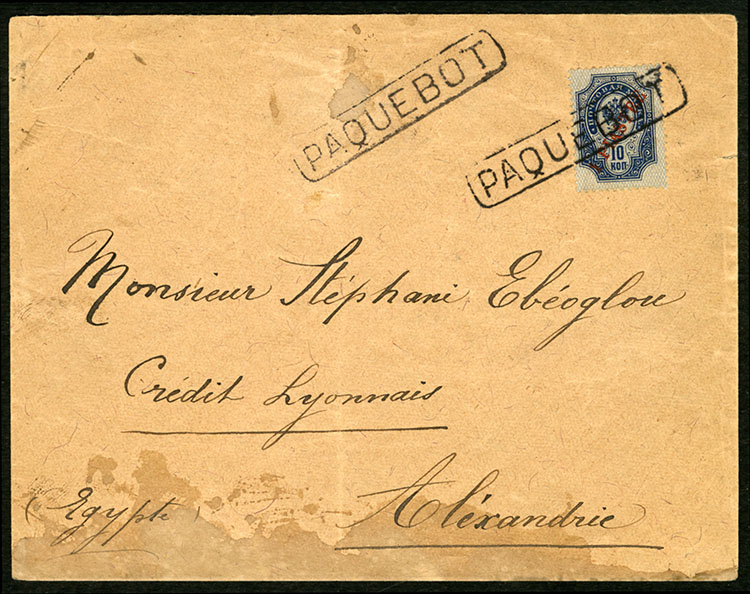 PAQUEBOT
PAQUEBOT
ПОЧТОВАЯ МАРКА
10
КОП
Monsieur Stéphani Ebéoglou
Crédit Lyonnais
Aléxandrie
(Egypte)